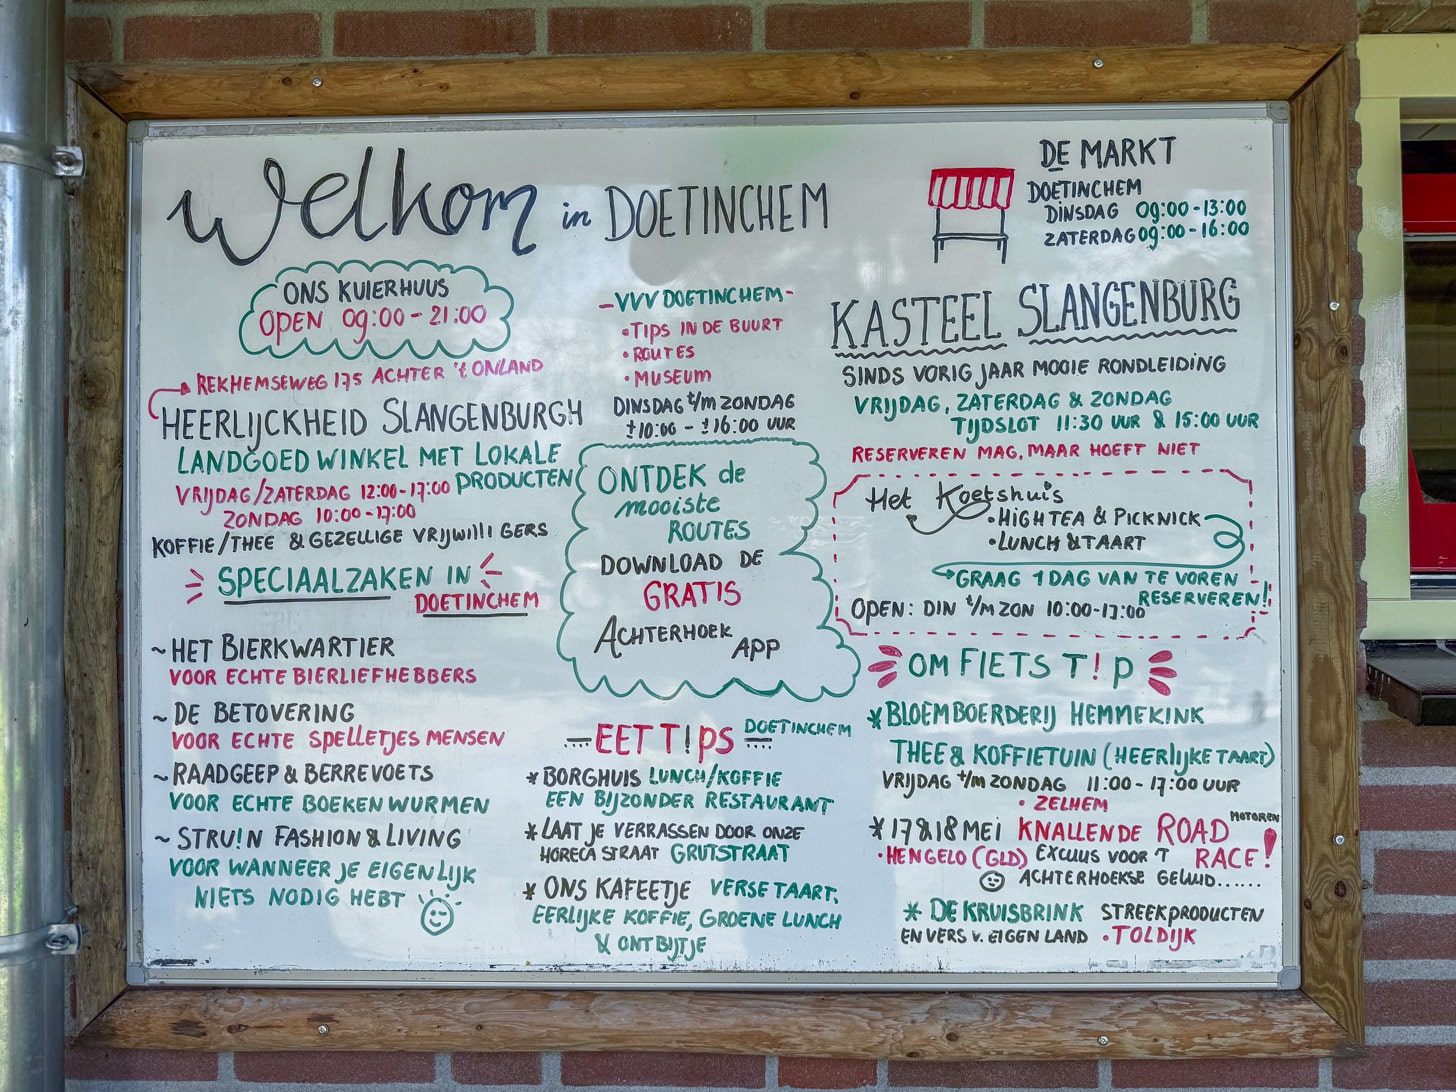 Welkom in DOETINCHEM
DE MARKT
DOETINCHEM
DINSDAG 09:00-13:00
ZATERDAG 09:00-16:00
ONS KUIERHUUS
OPEN 09:00-21:00
REKHEMSEWEG 175 ACHTER 't ONLAND
HEERLIJCKHEID SLANGENBURGH
LANDGOED WINKEL MET LOKALE
PRODUCTEN
VRIJDAG/ZATERDAG 12:00-17:00
ZONDAG 10:00-17:00
KOFFIE/THEE & GEZELLIGE VRIJWILLIGERS
SPECIAALZAKEN IN
DOETINCHEM
~HET BIERKWARTIER
VOOR ECHTE BIERLIEFHEBBERS
~DE BETOVERING
VOOR ECHTE SPELLETJES MENSEN
~RAADGEEP & BERREVOETS
VOOR ECHTE BOEKEN WURMEN
~STRU!N FASHION & LIVING
VOOR WANNEER JE EIGENLIJK
NIETS NODIG HEBT
-VVV DOETINCHEM-
•TIPS IN DE BUURT
•ROUTES
•MUSEUM
DINSDAG t/m ZONDAG
±10:00 - ±16:00 UUR
ONTDEK de
mooiste
ROUTES
DOWNLOAD DE
GRATIS
ACHTERHOEK
APP
EET T!PS DOETINCHEM
*BORGHUIS LUNCH/KOFFIE
EEN BIJZONDER RESTAURANT
*LAAT JE VERRASSEN DOOR ONZE
HORECA STRAAT GRUTSTRAAT
*ONS KAFEETJE VERSE TAART,
EERLIJKE KOFFIE, GROENE LUNCH
& ONTBIJTJE
KASTEEL SLANGENBURG
SINDS VORIG JAAR MOOIE RONDLEIDING
VRIJDAG, ZATERDAG & ZONDAG
TIJDSLOT 11:30 UUR & 15:00 UUR
RESERVEREN MAG, MAAR HOEFT NIET
Het Koetshuis
•HIGH TEA & PICKNICK
•LUNCH & TAART
GRAAG 1 DAG VAN TE VOREN
RESERVEREN!!
OPEN: DIN t/m ZON 10:00-17:00
OM FIETS T!P
*BLOEMBOERDERIJ HEMMEKINK
THEE & KOFFIETUIN (HEERLIJKE TAART)
VRIJDAG t/m ZONDAG 11:00-17:00 UUR
•ZELHEM
*17&18 MEI KNALLENDE ROAD MOTOREN
•HENGELO (GLD) EXCUUS VOOR 'T RACE!
ACHTERHOEKSE GELUID......
*DE KRUISBRINK STREEKPRODUCTEN
EN VERS v. EIGEN LAND •TOLDIJK